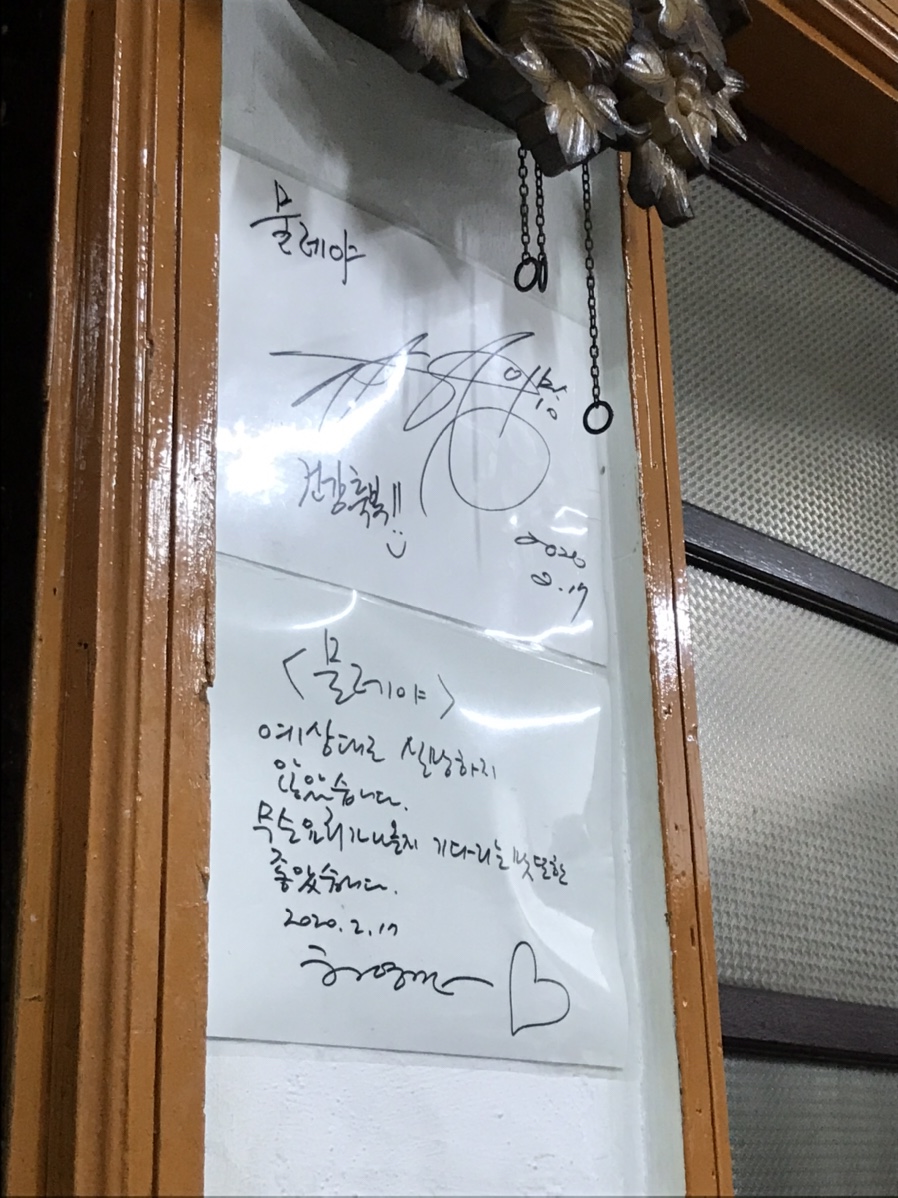 물레야
건강축복!!
2020
2.17
<물레야>
예상대로 실망하지
않았습니다.
무슨요리가나올지 기다리는 맛 또한
좋았습니다.
2020. 2. 17
허영만